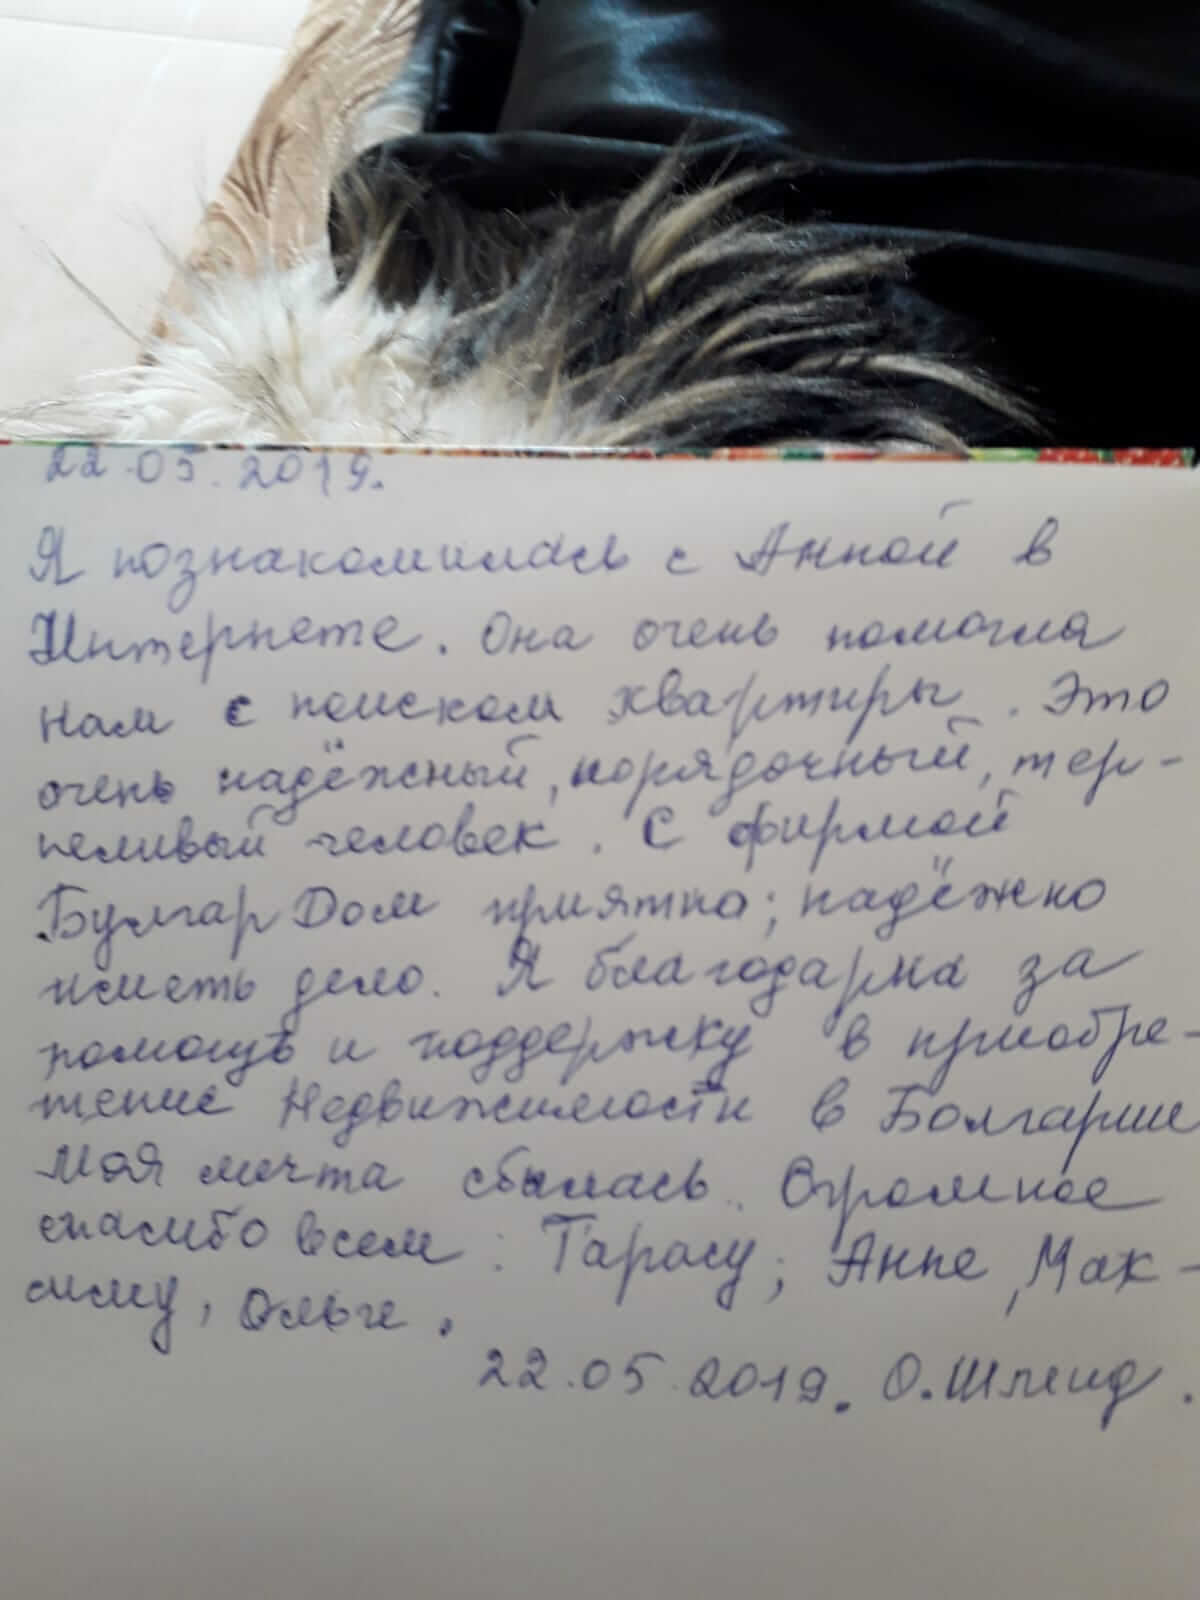 22.05.2019.
Я познакомилась с Анной в
Интернете. Она очень помогла
нам с поиском квартиры. Это
очень надёжный, порядочный, тер-
пеливый человек. С фирмой
Булгар Дом приятно; надёжно
иметь дело. Я благодарна за
помощь и поддержку в приобре-
тение Недвижимости в Болгарии
Моя мечта сбылась. Огромное
спасибо всем: Тарасу; Анне, Мак-
симу, Ольге.
22.05.2019. О.